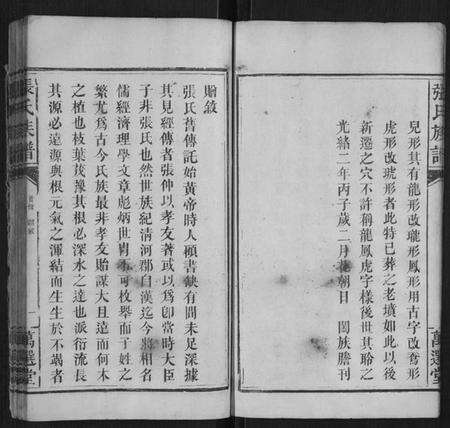 張氏族譜
兒形其有龍形改瓏形鳳形用古字改翕形
虎形改琥形者此特已葬之老墳如此以後
新遷之穴不許稱龍鳳虎字樣後世其聆之
光緒二年丙子歲二月花朝日 閤族謄刊
萬選堂
贈敘
張氏舊傳託始黃帝時人顧書缺有間未足深據
其見經傳者張仲以孝友著或以為卽當時大臣
子非張氏也然世族紀清河郡自漢迄今將相名
儒經濟理學文章彪炳世胄不可枚舉而于姓之
繁尤為古今氏族最非孝友貽謀大且遠而何木
之植也枝葉茂豫其根必深水之達也派衍流長
其源必遠源與根元氣之渾結而生生於不竭者
張氏族譜
萬選堂